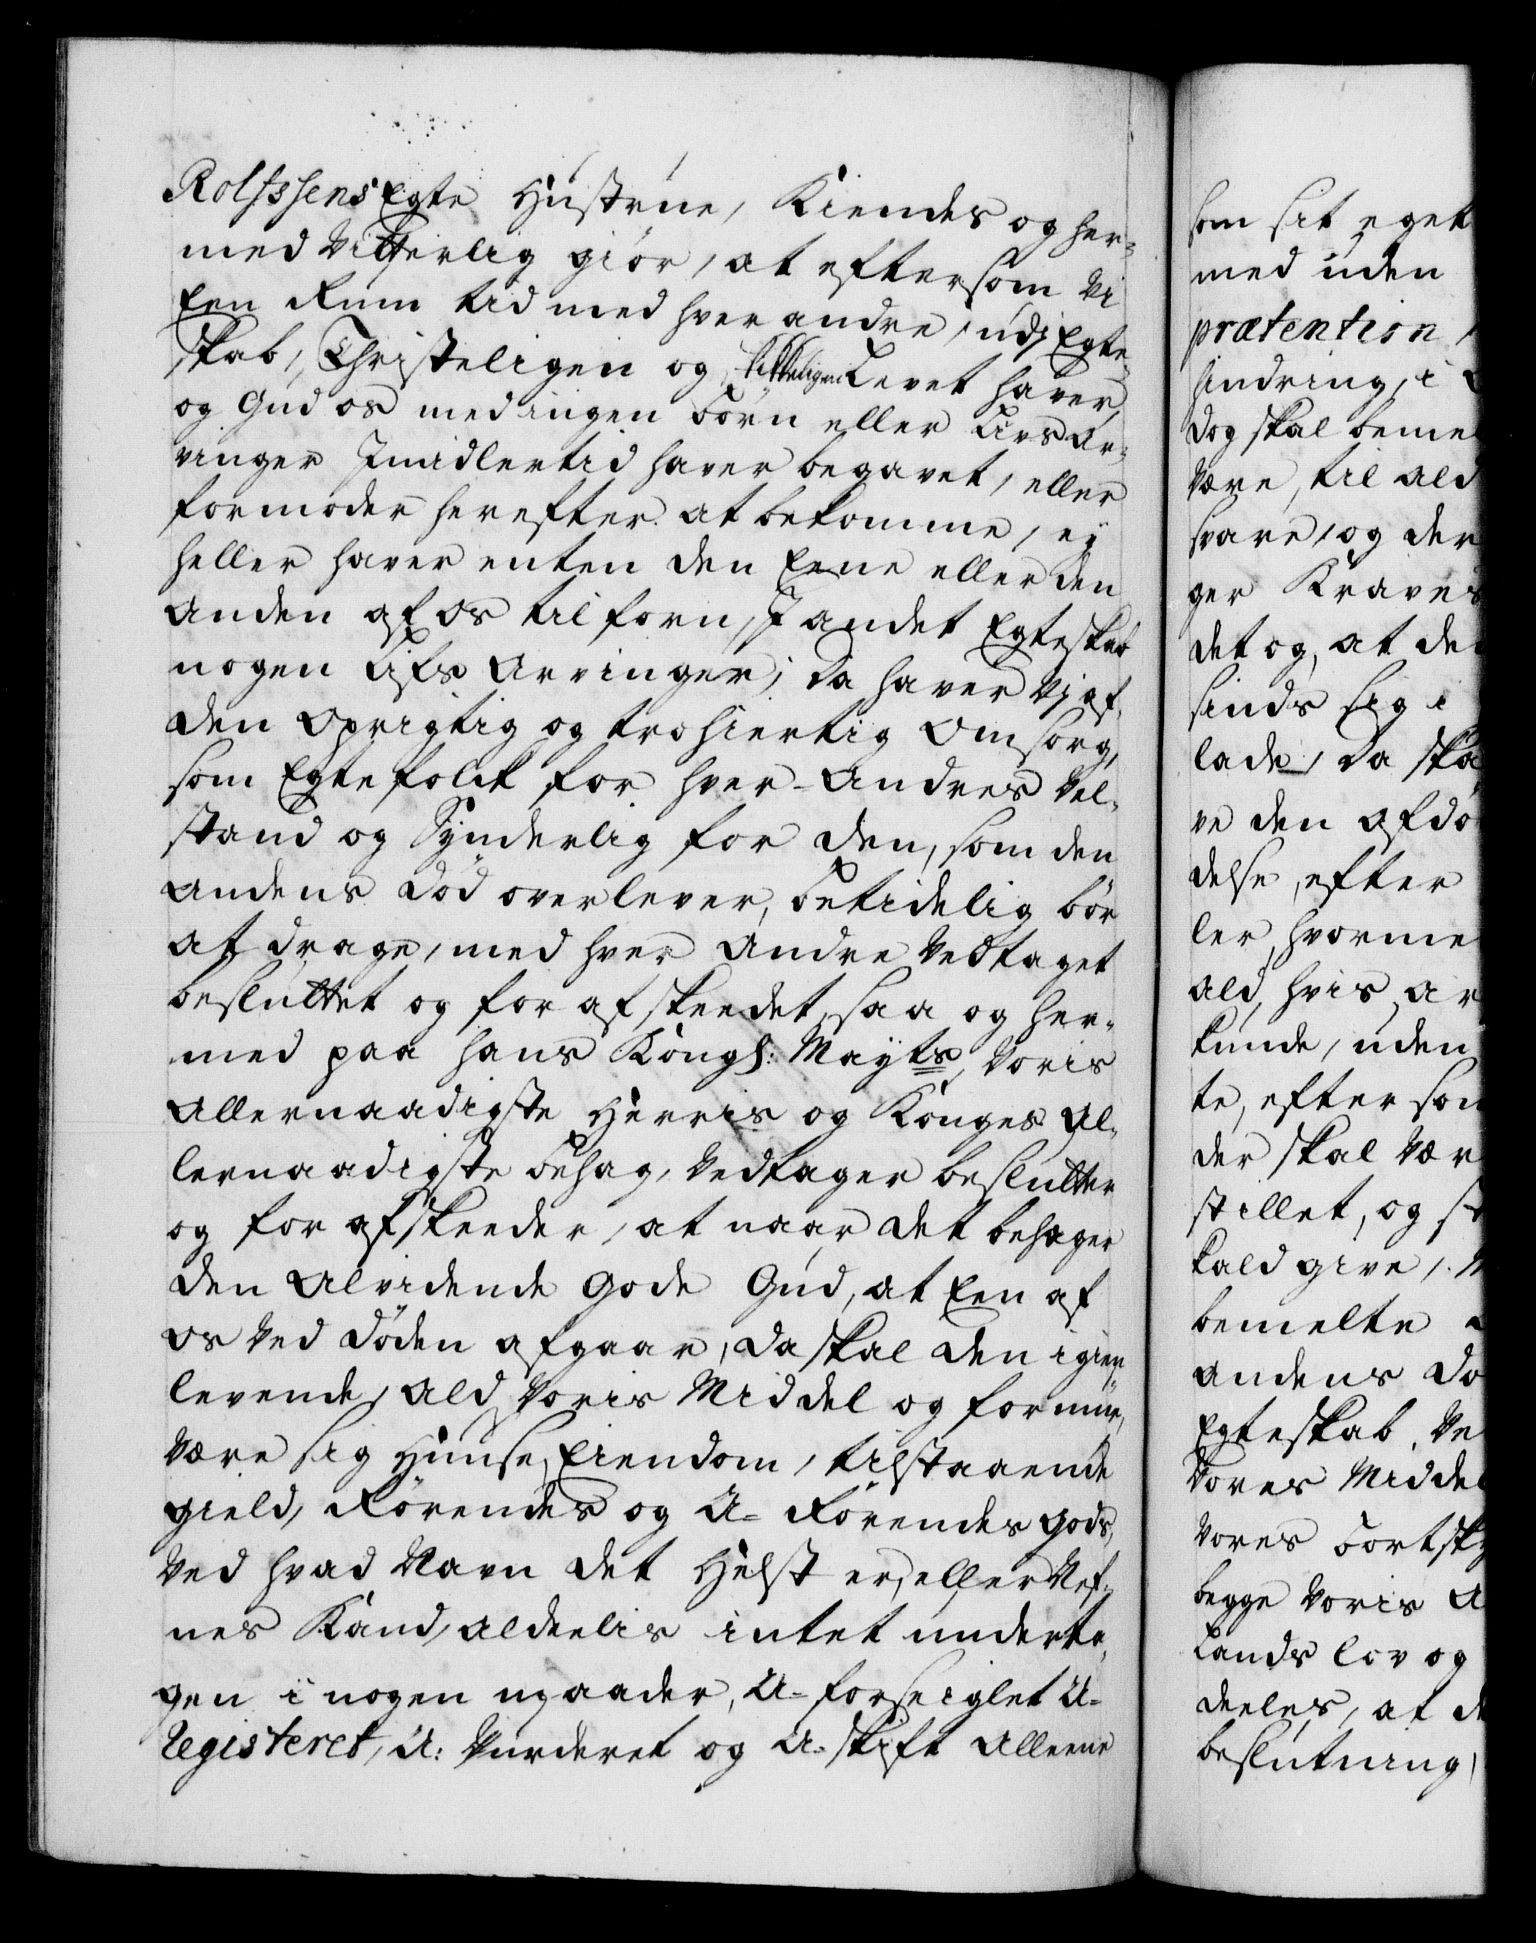 Rolfssens Egte Hustrue, Kiendes og her-
med Vitterlig giör, at eftersom Vi
Een Rum tid med hver andre, udj Egte-
skab, Christeligen og Levet haver,
og Gud os med ingen Börn eller Livs Ar-
vinger Imidlertid haver begavet, eller
formoder herefter at bekomme, ey
heller haver enten den Eene eller den
Anden af os tilforn, J andet Egteskab
nogen Lifs Arvinger; Da haver Vj af
den Oprigtig og trohiertig Omsorg,
som Egtefolck for hver-Andres Vel-
stand og Synderlig for den, som den
Andens död overlever, betidelig bör
at drage, med hver Andre Vedtaget
besluttet og for afskeedet, saa og her-
med paa hans Kongl: Mayts, Voris
Allernaadigste Herris og Konges Al-
lernaadigste behag, Vedtager beslutter
og for afskeeder, at naar det behager
den Alvidende Gode Gud, at Een af
os Ved döden afgaar, da skal den igien
levende, Ald Voris Middel og formue,
Være sig Huuse, Eiendom, tilstaaende
gield, Rörendes og U-Rörendes gods,
Ved hvad Navn det Helst er, eller Nef-
nes Kand, Aldeelis intet underta-
gen i nogen maader, U-forseiglet U-
Registeret, U: Vurderet og U-skift Alleene
som sit eget
med uden
prætention
hindring, i
dog skal beme
Være, til Ald
svare, og der
ger Kraves
det og, at de
finds sig i
lade, Da ska
ve den afdö
delse, efter
ler, hvorme
Ald, hvis, ar
kunde, uden
te, efter som
der skal Vær
stillet, og
kald give,
bemelte
Andens dö
Egteskab, Ve
Vores Middel
Vores bortsk
begge Voris A
Lands Lov og
deeles, at d
beslutning,